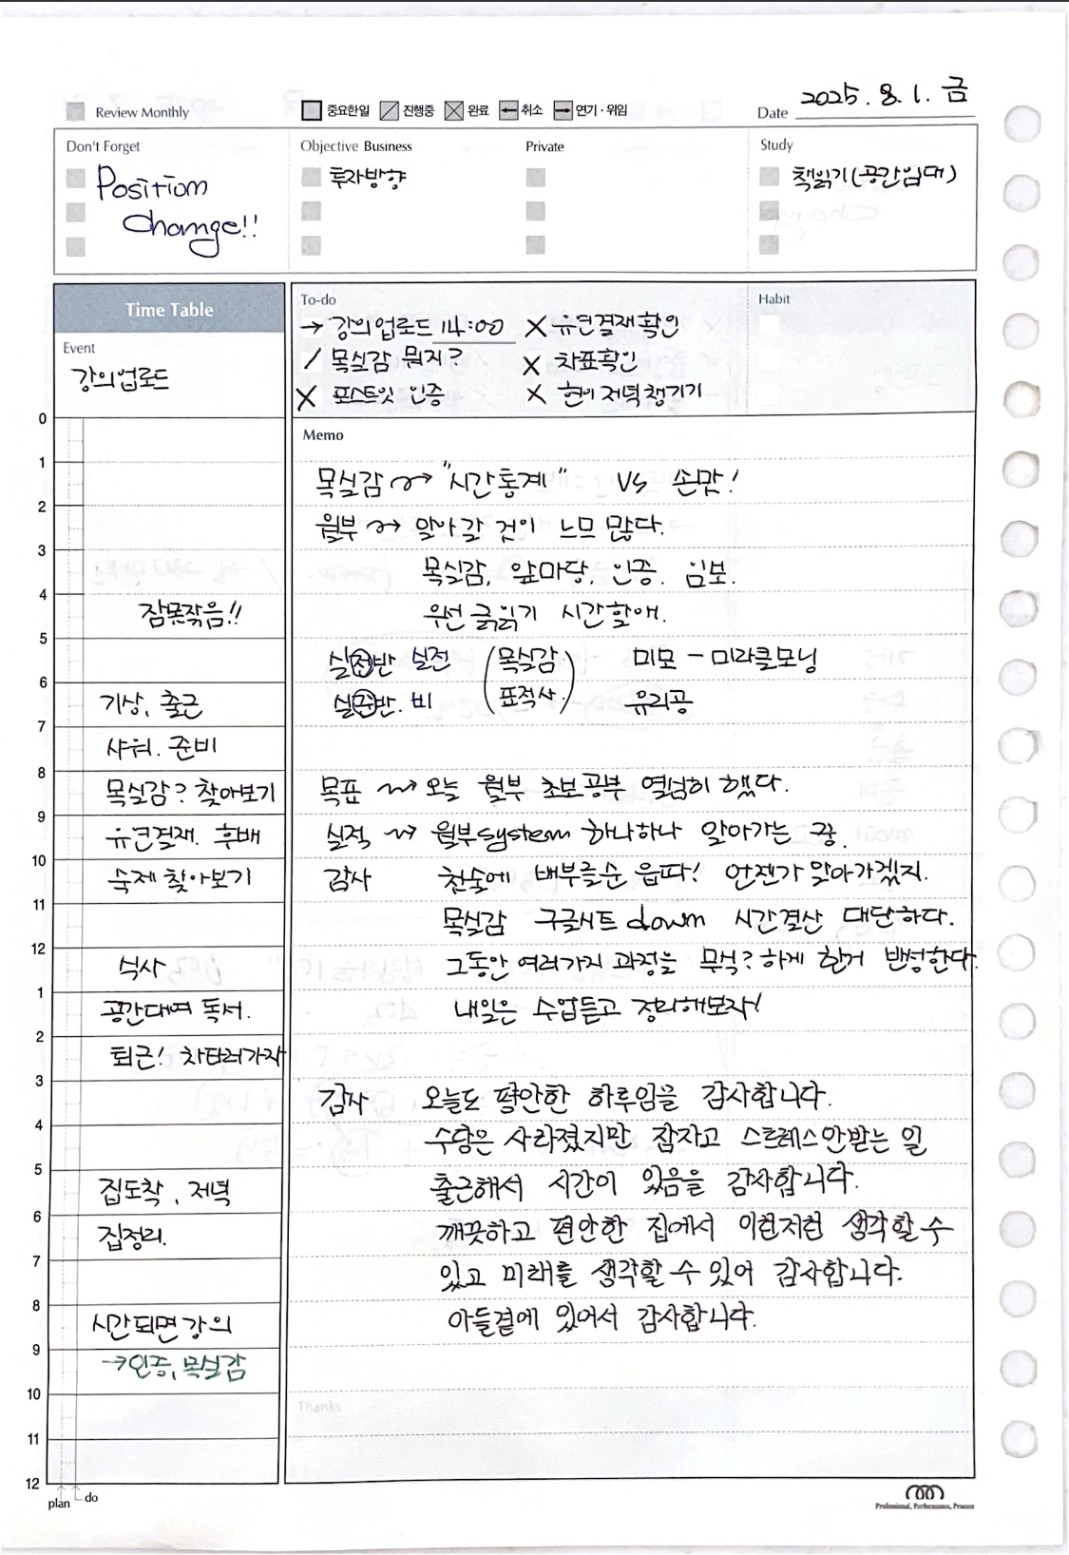 2025. 8. 1. 금
Review Monthly
중요한일 진행중 완료 취소 연기·위임
Date
Don't Forget
Position
Change!!
Objective Business
투자방향
Private
Study
책읽기(공간임대)
Time Table
Event
강의업로드
To-do
→ 강의업로드 14:00
/ 목실감 뭐지?
X 포스트잇 인증
X 유연결재확인
X 차표확인
X 현이 저녁챙기기
Habit
0
1
2
3
4
잠못잤음!!
5
6
기상, 출근
7
샤워. 준비
8
목실감? 찾아보기
9
유연결재. 후배
10
숙제 찾아보기
11
12
식사
1
공간대여 독서.
2
퇴근! 차타러가자
3
4
5
집도착, 저녁
6
집정리.
7
8
시간되면 강의
9
→인증, 목실감
10
11
12
plan do
Memo
목실감 → "시간통계" VS 손맛!
월부 → 알아갈 것이 느므 많다.
목실감, 앞마당, 인증. 임보.
우선 글읽기 시간할애.
실전반 실전 (목실감 미모 - 미라클모닝
실준반. 비 표적사.) 유리공
목표 → 오늘 월부 초보공부 열심히 했다.
실적 → 월부system 하나하나 알아가는 중.
감사 첫술에 배부를순 읍따! 언젠가 알아가겠지.
목실감 구글시트 down 시간결산 대단하다.
그동안 여러가지 과정을 무식?하게 한거 반성한다.
내일은 수업듣고 정리해보자!
감사 오늘도 평안한 하루임을 감사합니다.
수당은 사라졌지만 잠자고 스트레스안받는 일
출근해서 시간이 있음을 감사합니다.
깨끗하고 편안한 집에서 이런저런 생각할 수
있고 미래를 생각할 수 있어 감사합니다.
아들곁에 있어서 감사합니다.
Thanks
Professional, Performance, Process